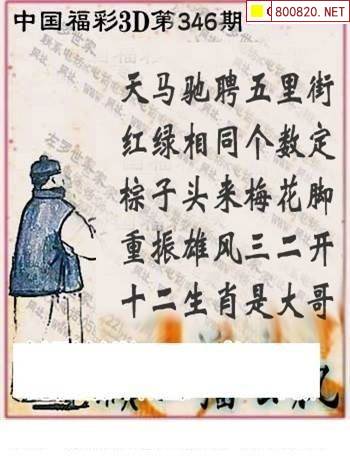 800820.NET
中国福彩3D第346期
天马驰聘五里街
红绿相同个数定
棕子头来梅花脚
重振雄风三二开
十二生肖是大哥